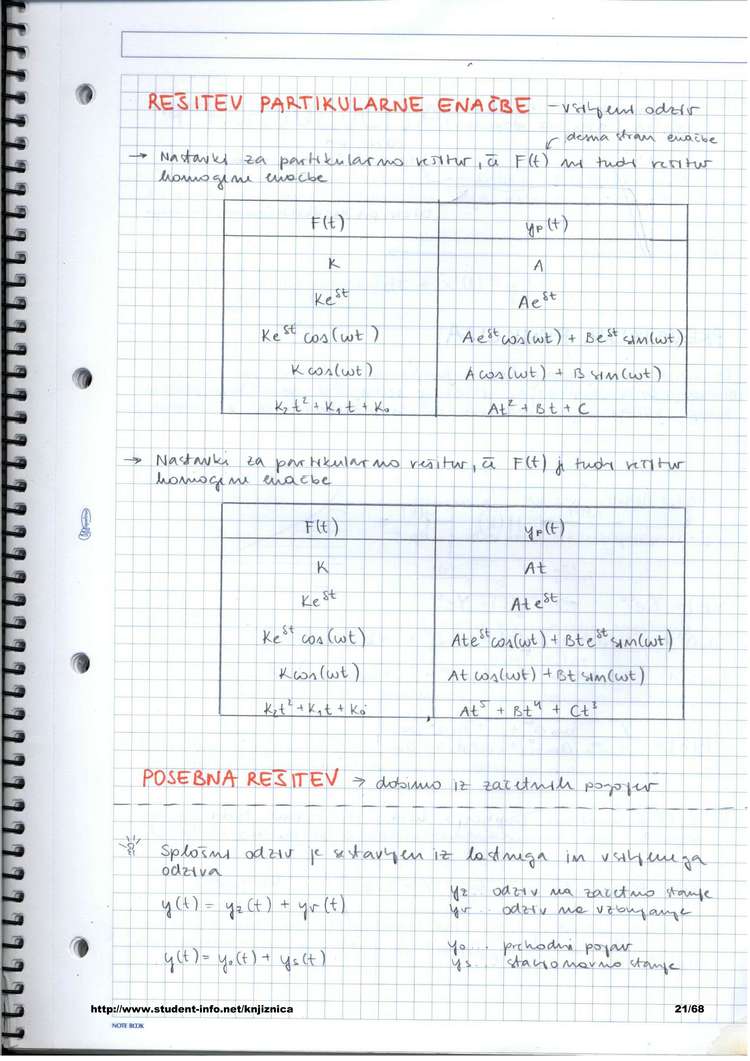 REŠITEV PARTIKULARNE ENAČBE – vsiljeni odziv
desna stran enačbe
→ Nastavki za partikularno rešitev, če F(t) ni tudi rešitev
homogene enačbe
F(t) yₚ(t)
K A
Ke^δt Ae^δt
Ke^δt cos(ωt) Ae^δt cos(ωt) + Be^δt sin(ωt)
K cos(ωt) A cos(ωt) + B sin(ωt)
K₂t² + K₁t + K₀ At² + Bt + C
→ Nastavki za partikularno rešitev, če F(t) je tudi rešitev
homogene enačbe
F(t) yₚ(t)
K At
Ke^δt Ate^δt
Ke^δt cos(ωt) Ate^δt cos(ωt) + Bte^δt sin(ωt)
K cos(ωt) At cos(ωt) + Bt sin(ωt)
K₂t² + K₁t + K₀ At⁵ + Bt⁴ + Ct³
POSEBNA REŠITEV → dobimo iz začetnih pogojev
Splošni odziv je sestavljen iz lastnega in vsiljenega
odziva
y(t) = y_z(t) + y_v(t)
y_z .. odziv na začetno stanje
y_v .. odziv na vzbujanje
y(t) = y₀(t) + y_s(t)
y₀ ... prehodni pojav
y_s ... stacionarno stanje
http://www.student-info.net/knjiznica 21/68
NOTE BOOK